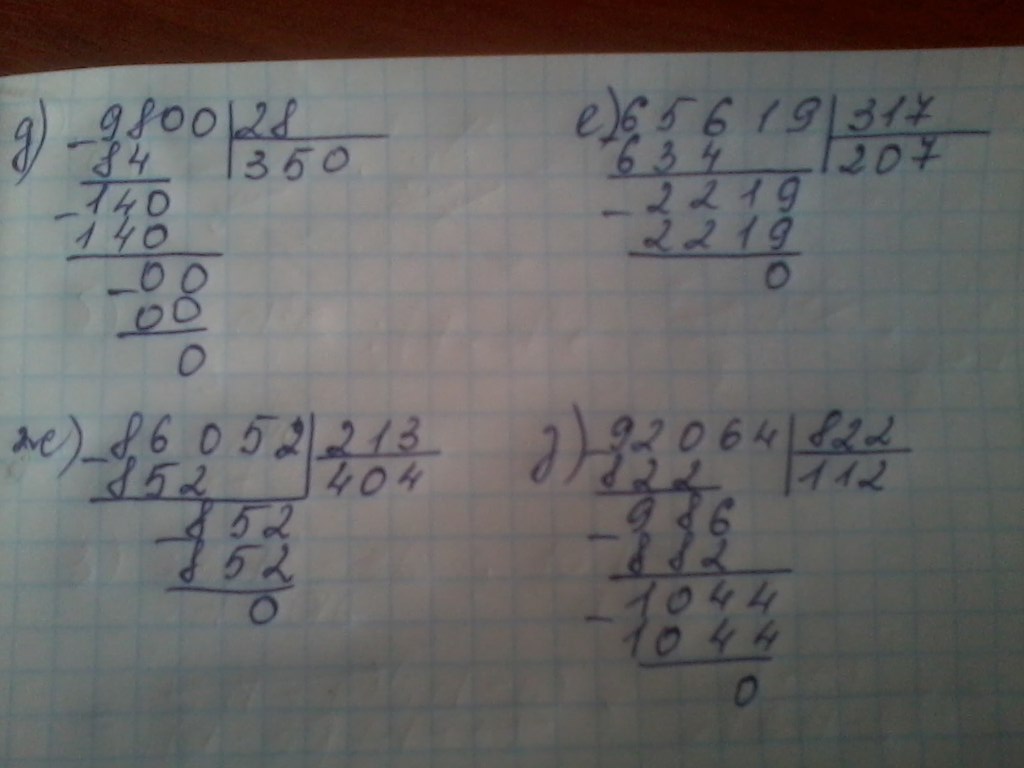 д) -9800 | 28
84 | 350
-140
140
-00
00
0
е) -65619 | 317
634 | 207
-2219
2219
0
ж) -86052 | 213
852 | 404
-852
852
0
з) -92064 | 822
822 | 112
-986
882
-1044
1044
0